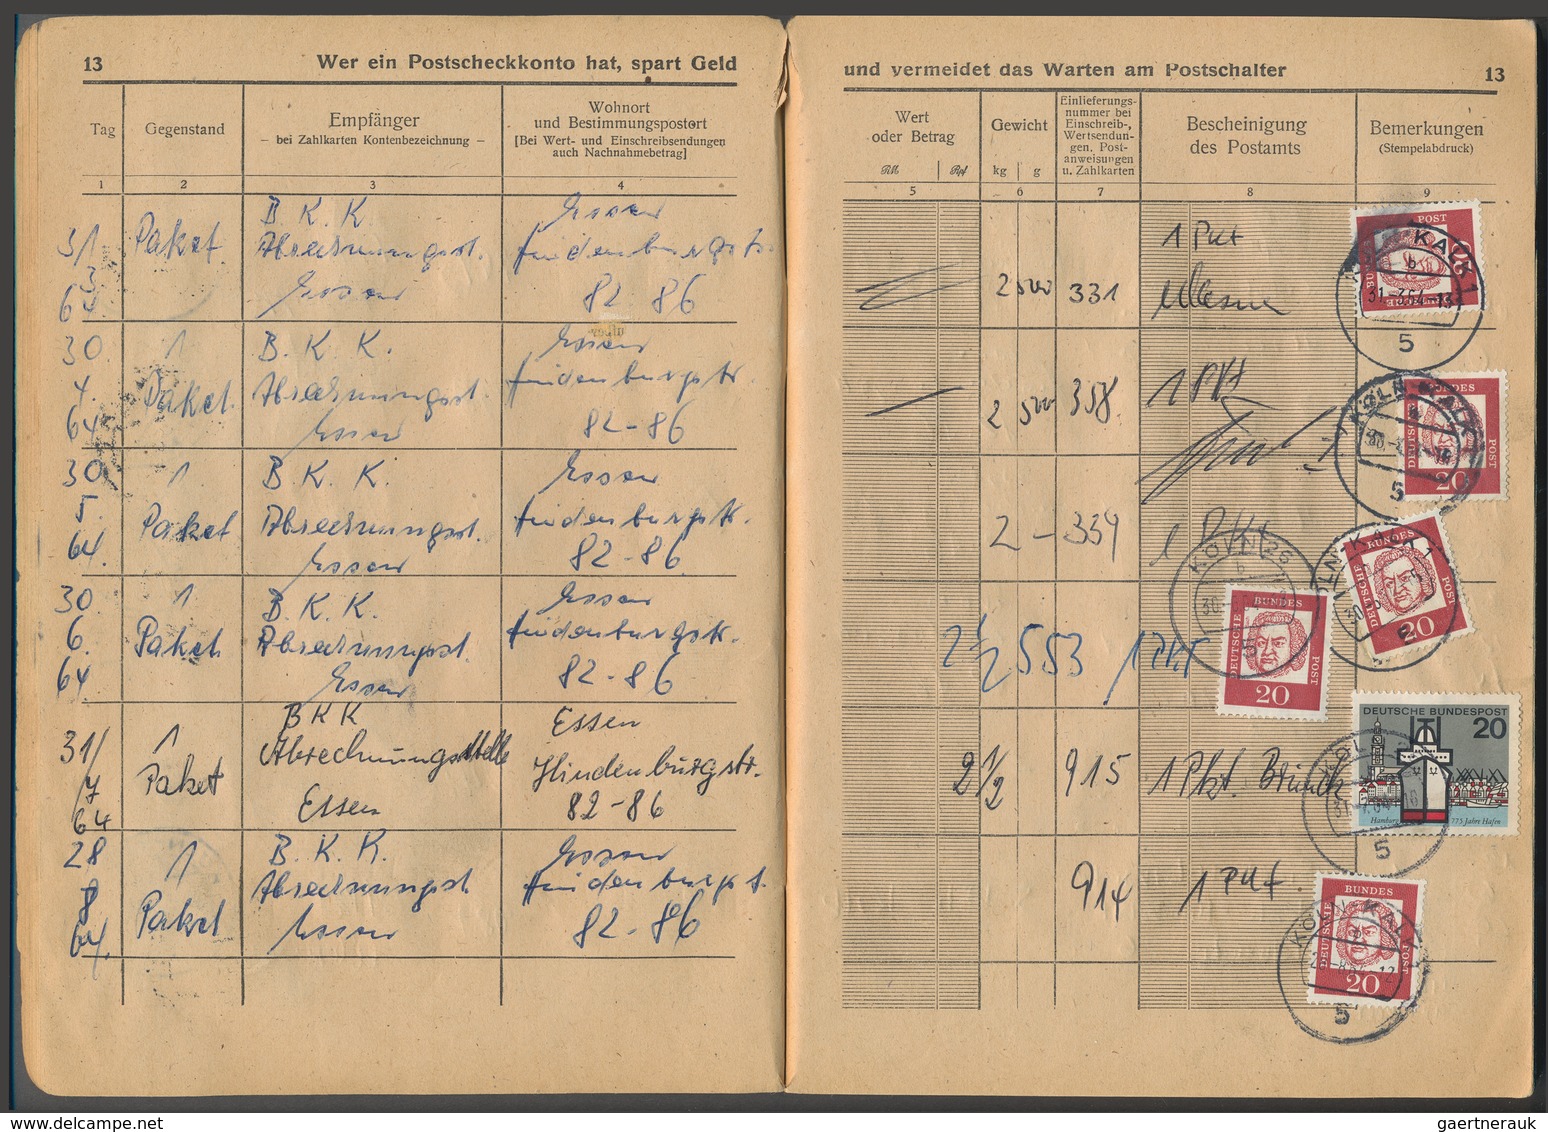 13 Wer ein Postscheckkonto hat, spart Geld
und vermeidet das Warten am Postschalter 13
Tag
Gegenstand
Empfänger
– bei Zahlkarten Kontenbezeichnung –
Wohnort
und Bestimmungspostort
[Bei Wert- und Einschreibsendungen
auch Nachnahmebetrag]
Wert
oder Betrag
RM Rpf
Gewicht
kg g
Einlieferungs-
nummer bei
Einschreib-,
Wertsendun-
gen, Post-
anweisungen
u. Zahlkarten
Bescheinigung
des Postamts
Bemerkungen
(Stempelabdruck)
1 2 3 4 5 6 7 8 9
31
3
64.
Paket
B K K
Abrechnungsst.
Essen
Essen
Hindenburgstr.
82-86
2 500 331
1 Pkt
30.
4.
64.
1
Paket.
B. K. K.
Abrechnungsst.
Essen
Essen
Hindenburgstr.
82-86
2 500 358.
1 Pkt
30
5.
64.
1
Paket
B. K. K.
Abrechnungsst.
Essen
Essen
Hindenburgstr.
82-86
2 - 339
1 Pkt
30
6.
64
1
Paket
B. K. K.
Abrechnungsst.
Essen
Essen
Hindenburgstr.
82-86
2 1/2 553 1 Pkt
31/
7
64
1
Paket
BKK
Abrechnungsstelle
Essen
Essen
Hindenburgstr.
82-86
2 1/2 915 1 Pkt.
28
8
64.
1
Paket
B. K. K.
Abrechnungsst
Essen
Essen
Hindenburgst.
82-86
914 1 Pkt
POST
KALK 1
b
5
DEUTSCHE BUNDES POST
20
KÖLN KALK
5
DEUTSCHE BUNDES POST
20
DEUTSCHE BUNDES POST
20
DEUTSCHE BUNDESPOST
20
Hamburg 775 Jahre Hafen
5
DEUTSCHE BUNDES POST
20
KÖLN KALK
5
gaertnerauk